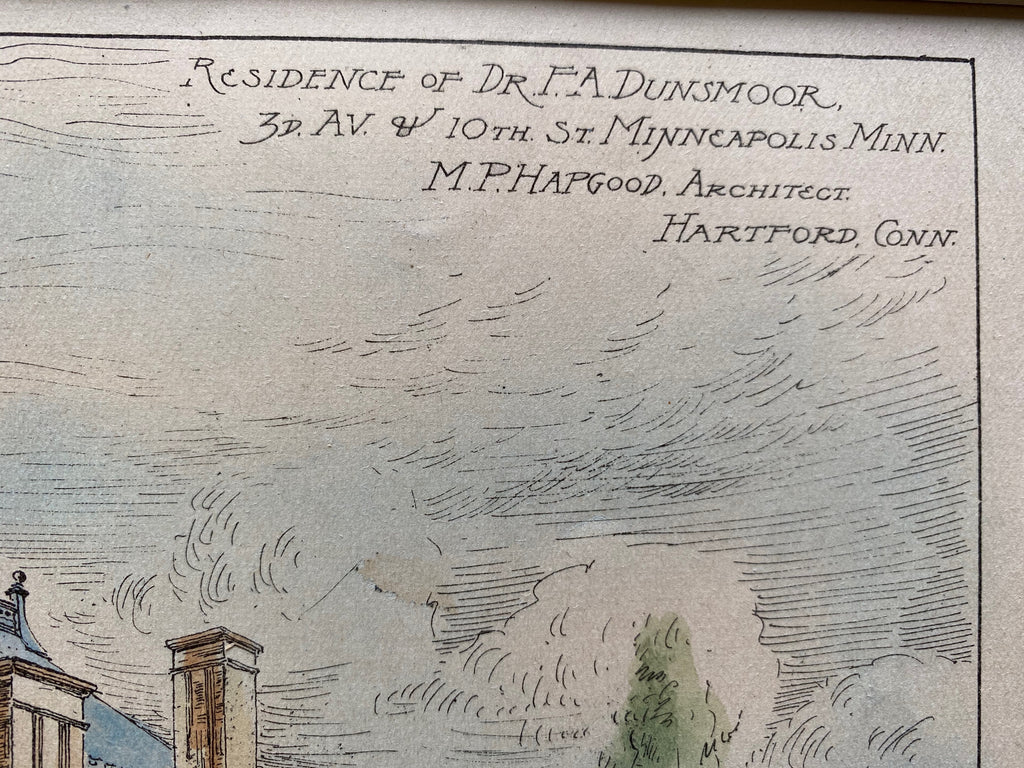 RESIDENCE OF DR. F.A. DUNSMOOR,
3D. AV. & 10TH. ST. MINNEAPOLIS MINN.
M.P. HAPGOOD, ARCHITECT.
HARTFORD, CONN.